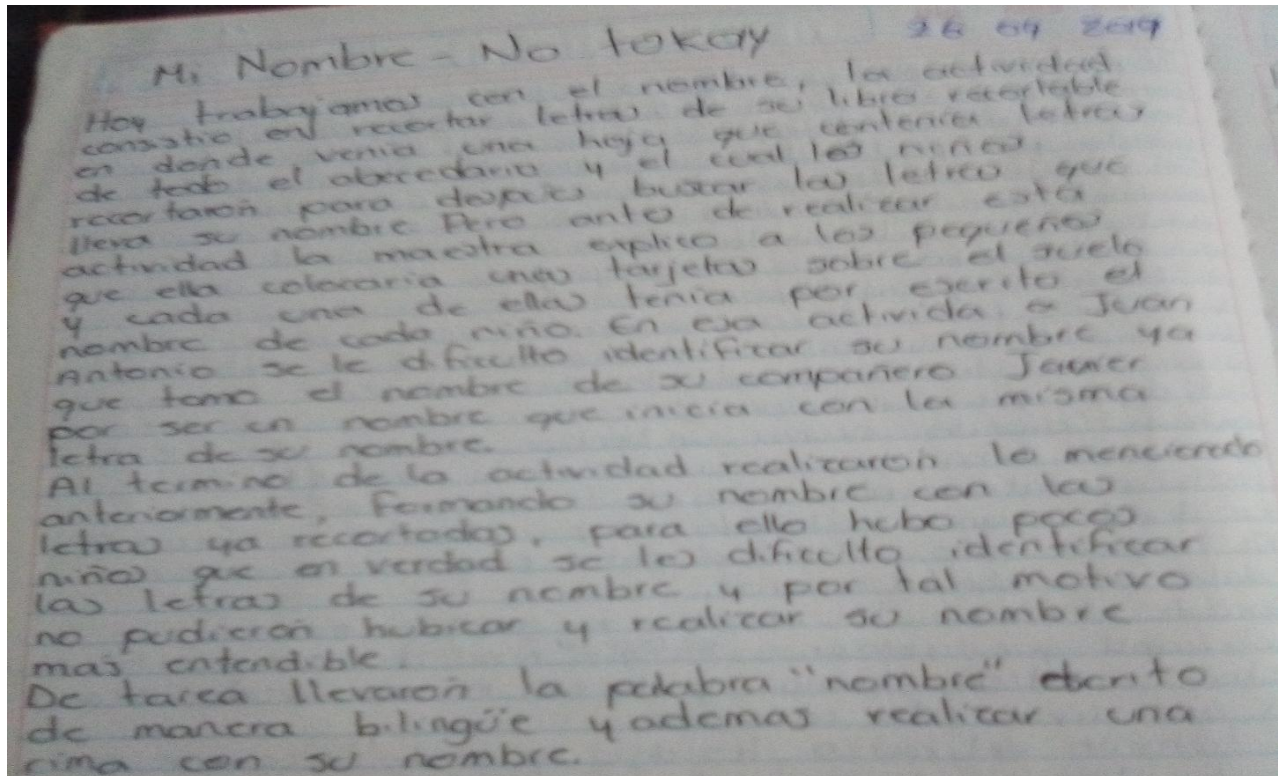 26 09 2019
Mi Nombre - No tokay
Hoy trabajamos con el nombre, la actividad
consistio en recortar letras de su libro recortable
en donde venia una hoja que contenia letras
de todo el abecedario y el cual los niños
recortaron para despues buscar las letras que
lleva su nombre Pero antes de realizar esta
actividad la maestra explico a los pequeños
que ella colocaria unas tarjetas sobre el suelo
y cada una de ellas tenia por escrito el
nombre de cada niño. En esa activida a Juan
Antonio se le dificulto identificar su nombre ya
que tomo el nombre de su compañero Javier
por ser un nombre que inicia con la misma
letra de su nombre.
Al termino de la actividad realizaron lo mencionado
anteriormente, Formando su nombre con las
letras ya recortadas, para ello hubo pocos
niños que en verdad se les dificulto identificar
las letras de su nombre y por tal motivo
no pudieron hubicar y realizar su nombre
mas entendible.
De tarea llevaron la palabra "nombre" escrito
de manera bilingüe y ademas realizar una
rima con su nombre.